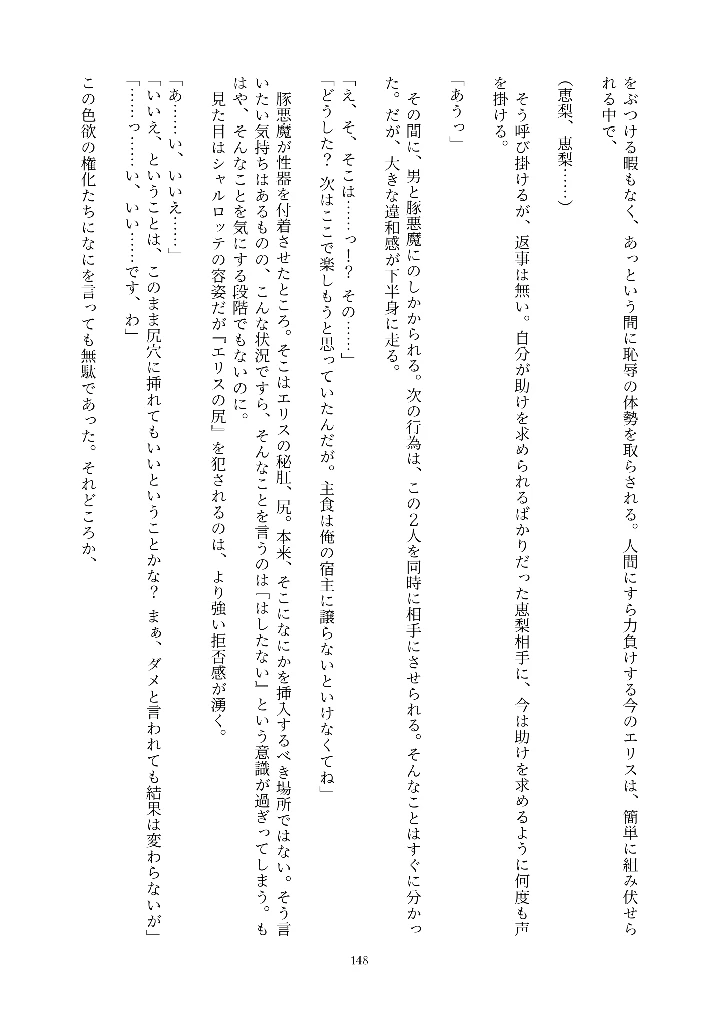 をぶつける暇もなく、あっという間に恥辱の体勢を取らされる。人間にすら力負けする今のエリスは、簡単に組み伏せら
れる中で、
(恵梨、恵梨……)
そう呼び掛けるが、返事は無い。自分が助けを求められるばかりだった恵梨相手に、今は助けを求めるように何度も声
を掛ける。
「あうっ」
その間に、男と豚悪魔にのしかかられる。次の行為は、この2人を同時に相手にさせられる。そんなことはすぐに分かっ
た。だが、大きな違和感が下半身に走る。
「え、そ、そこは……っ!? その……」
「どうした? 次はここで楽しもうと思っていたんだが。主食は俺の宿主に譲らないといけなくてね」
豚悪魔が性器を付着させたところ。そこはエリスの秘肛、尻。本来、そこになにかを挿入するべき場所ではない。そう言
いたい気持ちはあるものの、こんな状況ですら、そんなことを言うのは「はしたない」という意識が過ぎってしまう。も
はや、そんなことを気にする段階でもないのに。
見た目はシャルロッテの容姿だが『エリスの尻』を犯されるのは、より強い拒否感が湧く。
「あ……い、いいえ……」
「いいえ、ということは、このまま尻穴に挿れてもいいということかな? まぁ、ダメと言われても結果は変わらないが」
「……っ……い、いい……です、わ」
この色欲の権化たちになにを言っても無駄であった。それどころか、
148